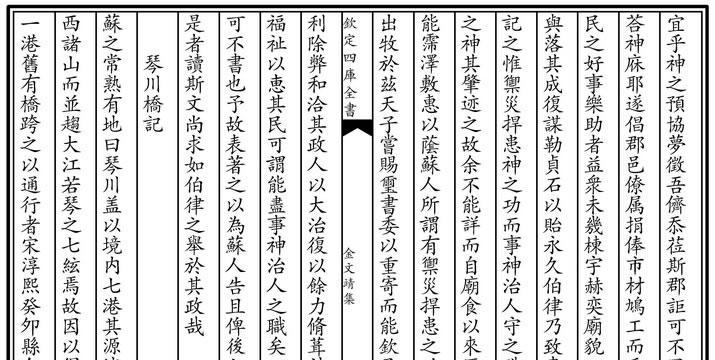 宜乎神之預協夢徵吾儕忝莅斯郡詎可不
答神庥耶遂倡郡邑僚属捐俸市材鳩工而
民之好事樂助者益衆未幾棟宇赫奕廟貌
與落其成復謀勒貞石以貽永久伯律乃致
記之惟禦災捍患神之功而事神治人守之
之神其肇迹之故余不能詳而自廟食以來
能霈澤敷惠以蔭蘇人所謂有禦災捍患之
出牧於茲天子嘗賜璽書委以重寄而能欽
欽定四庫全書
金文靖集
利除弊和洽其政人以大治復以餘力脩葺
福祉以恵其民可謂能盡事神治人之職矣
可不書也予故表著之以為蘇人告且俾後
是者讀斯文尚求如伯律之舉於其政哉
琴川橋記
蘇之常熟有地曰琴川盖以境内七港其源
西諸山而並趨大江若琴之七絃焉故因以
一港舊有橋跨之以通行者宋淳熙癸夘縣